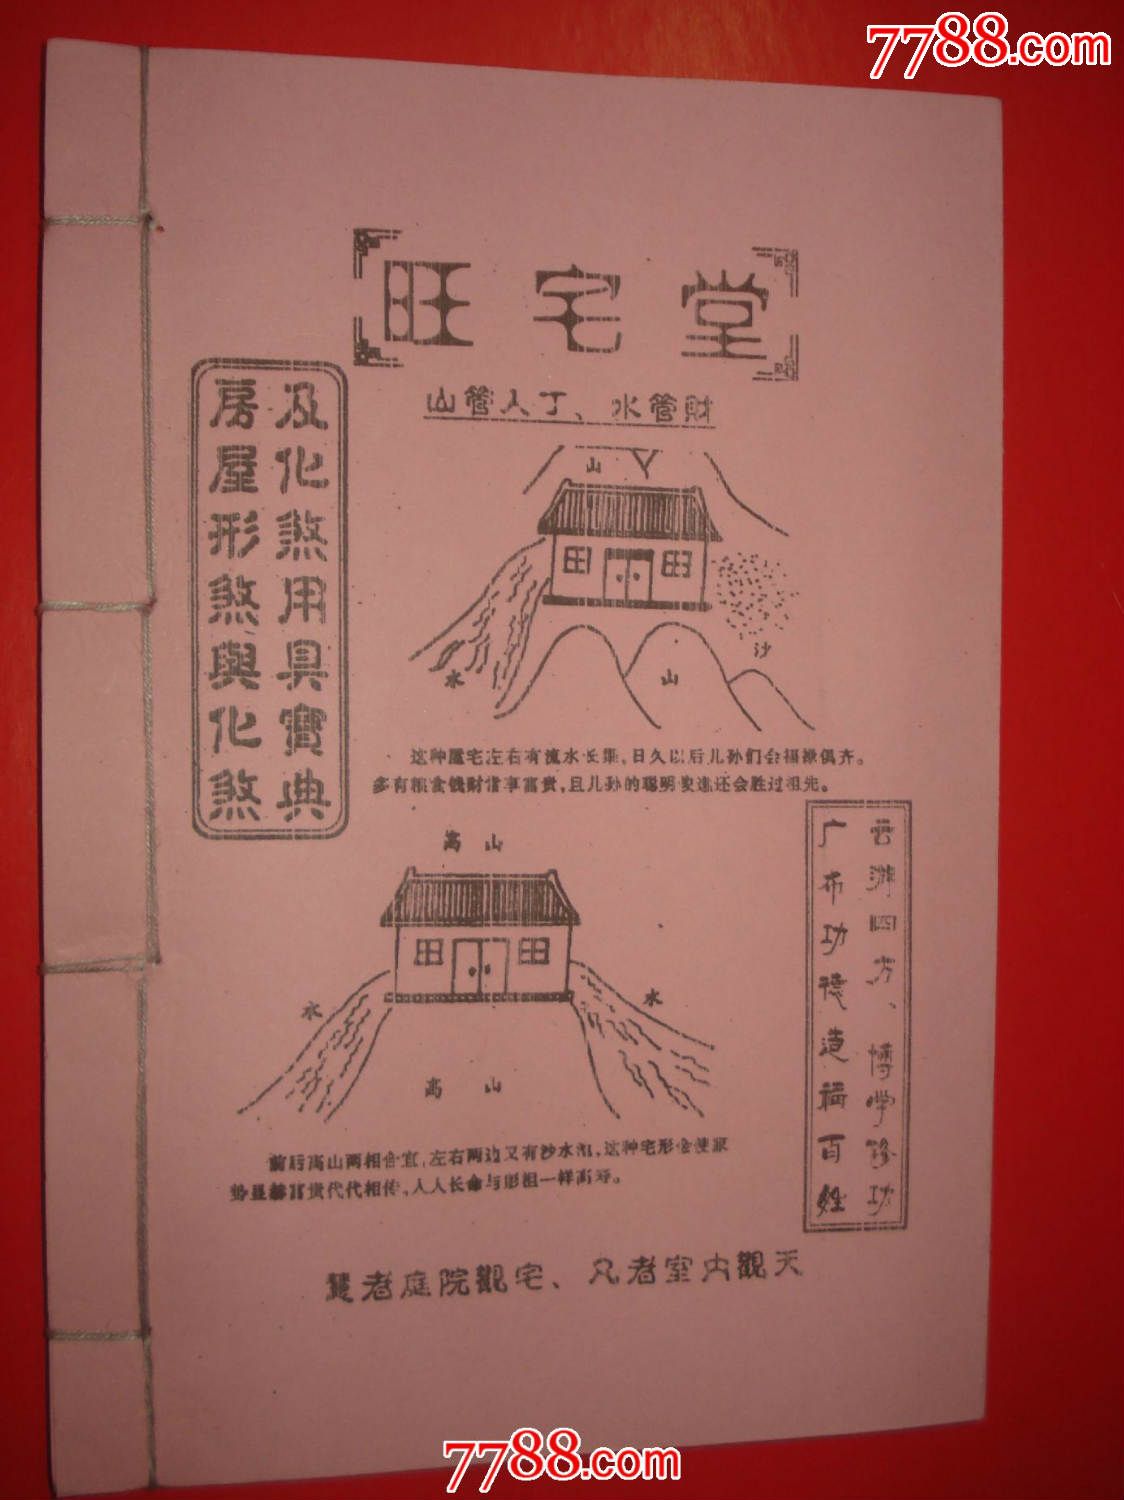 7788.com
旺宅堂
山管人丁、水管財
房屋形煞與化煞
及化煞用具寶典
山
水
山
沙
这种屋宅左右有流水长渠，日久以后儿孙们会福禄俱齐。
多有粮食钱财皆享富贵，且儿孙的聪明俊逸还会胜过祖先。
高山
水
水
高山
云游四方、博学修功
广布功德造福百姓
前后高山两相合宜，左右两边又有沙水池，这种宅形会使家
势显赫富贵代代相传，人人长命与彭祖一样高寿。
慧者庭院觀宅、凡者室内觀天
7788.com